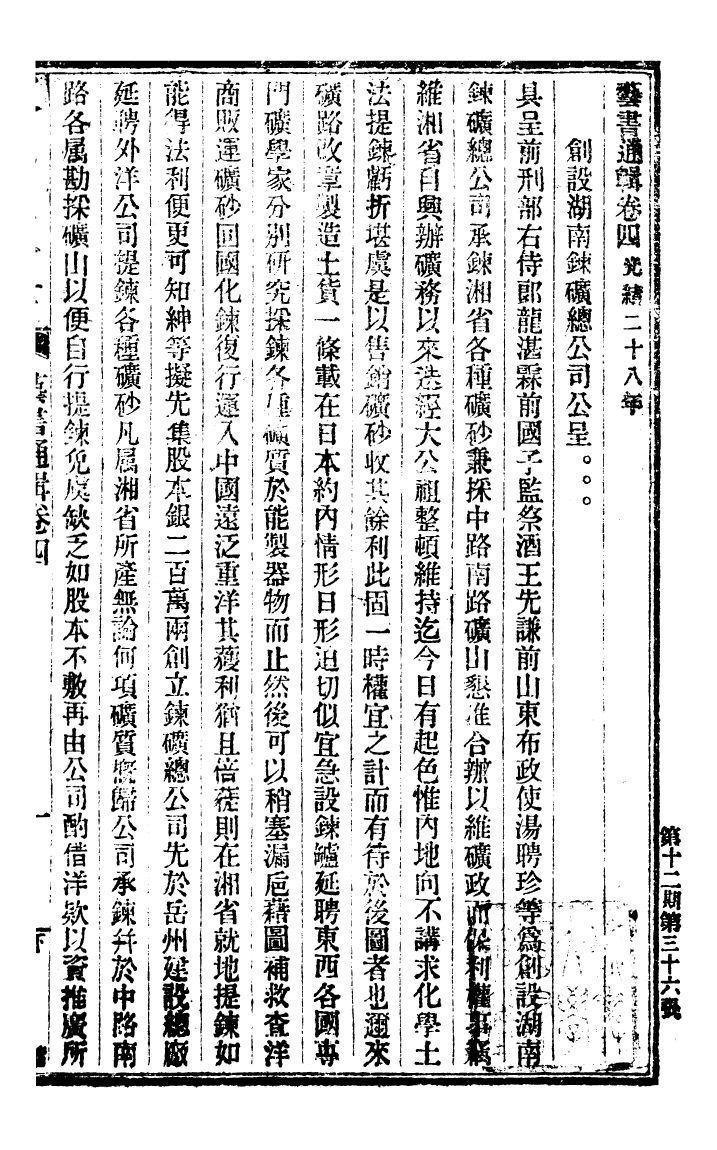 第十二期第三十六號
藝書通輯卷四 光緒二十八年
創設湖南鍊礦總公司公呈。。。
具呈前刑部右侍郎龍湛霖前國子監祭酒王先謙前山東布政使湯聘珍等爲創設湖南
鍊礦總公司承鍊湘省各種礦砂兼採中路南路礦山懇准合辦以維礦政而保利權事竊
維湘省自興辦礦務以來迭經大公祖整頓維持迄今日有起色惟內地向不講求化學土
法提鍊虧折堪虞是以售銷礦砂收其餘利此固一時權宜之計而有待於後圖者也邇來
礦路改章製造土貨一條載在日本約內情形日形迫切似宜急設鍊鑪延聘東西各國專
門礦學家分別研究採鍊各種礦質於能製器物而止然後可以稍塞漏巵藉圖補救查洋
商販運礦砂回國化鍊復行運入中國遠泛重洋其獲利猶且倍蓰則在湘省就地提鍊如
能得法利便更可知紳等擬先集股本銀二百萬兩創立鍊礦總公司先於岳州建設總廠
延聘外洋公司提鍊各種礦砂凡属湘省所產無論何項礦質槪歸公司承鍊幷於中路南
路各属勘採礦山以便自行提鍊免虞缺乏如股本不敷再由公司酌借洋欵以資推廣所
藝書通輯卷四
一